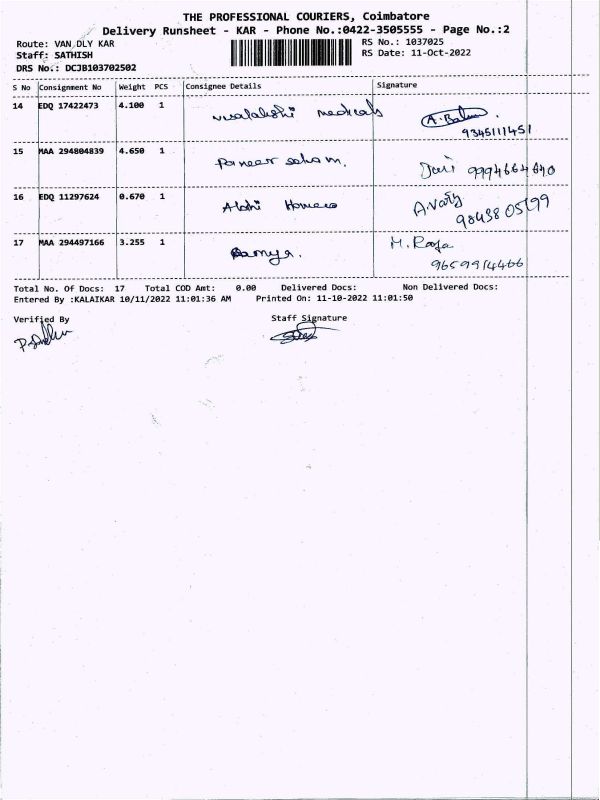 THE PROFESSIONAL COURIERS, Coimbatore
Delivery Runsheet - KAR - Phone No.:0422-3505555 - Page No.:2
Route: VAN DLY KAR
Staff: SATHISH
DRS No.: DCJB103702502
RS No.: 1037025
RS Date: 11-Oct-2022
S No Consignment No Weight PCS Consignee Details Signature
14 EDQ 17422473 4.100 1 medicals
9345111451
15 MAA 294804839 4.650 1 9994664640
16 EDQ 11297624 0.670 1
9843805199
17 MAA 294497166 3.255 1 Ramya. M. Raja
9659914466
Total No. Of Docs: 17 Total COD Amt: 0.00 Delivered Docs: Non Delivered Docs:
Entered By :KALAIKAR 10/11/2022 11:01:36 AM Printed On: 11-10-2022 11:01:50
Verified By Staff Signature